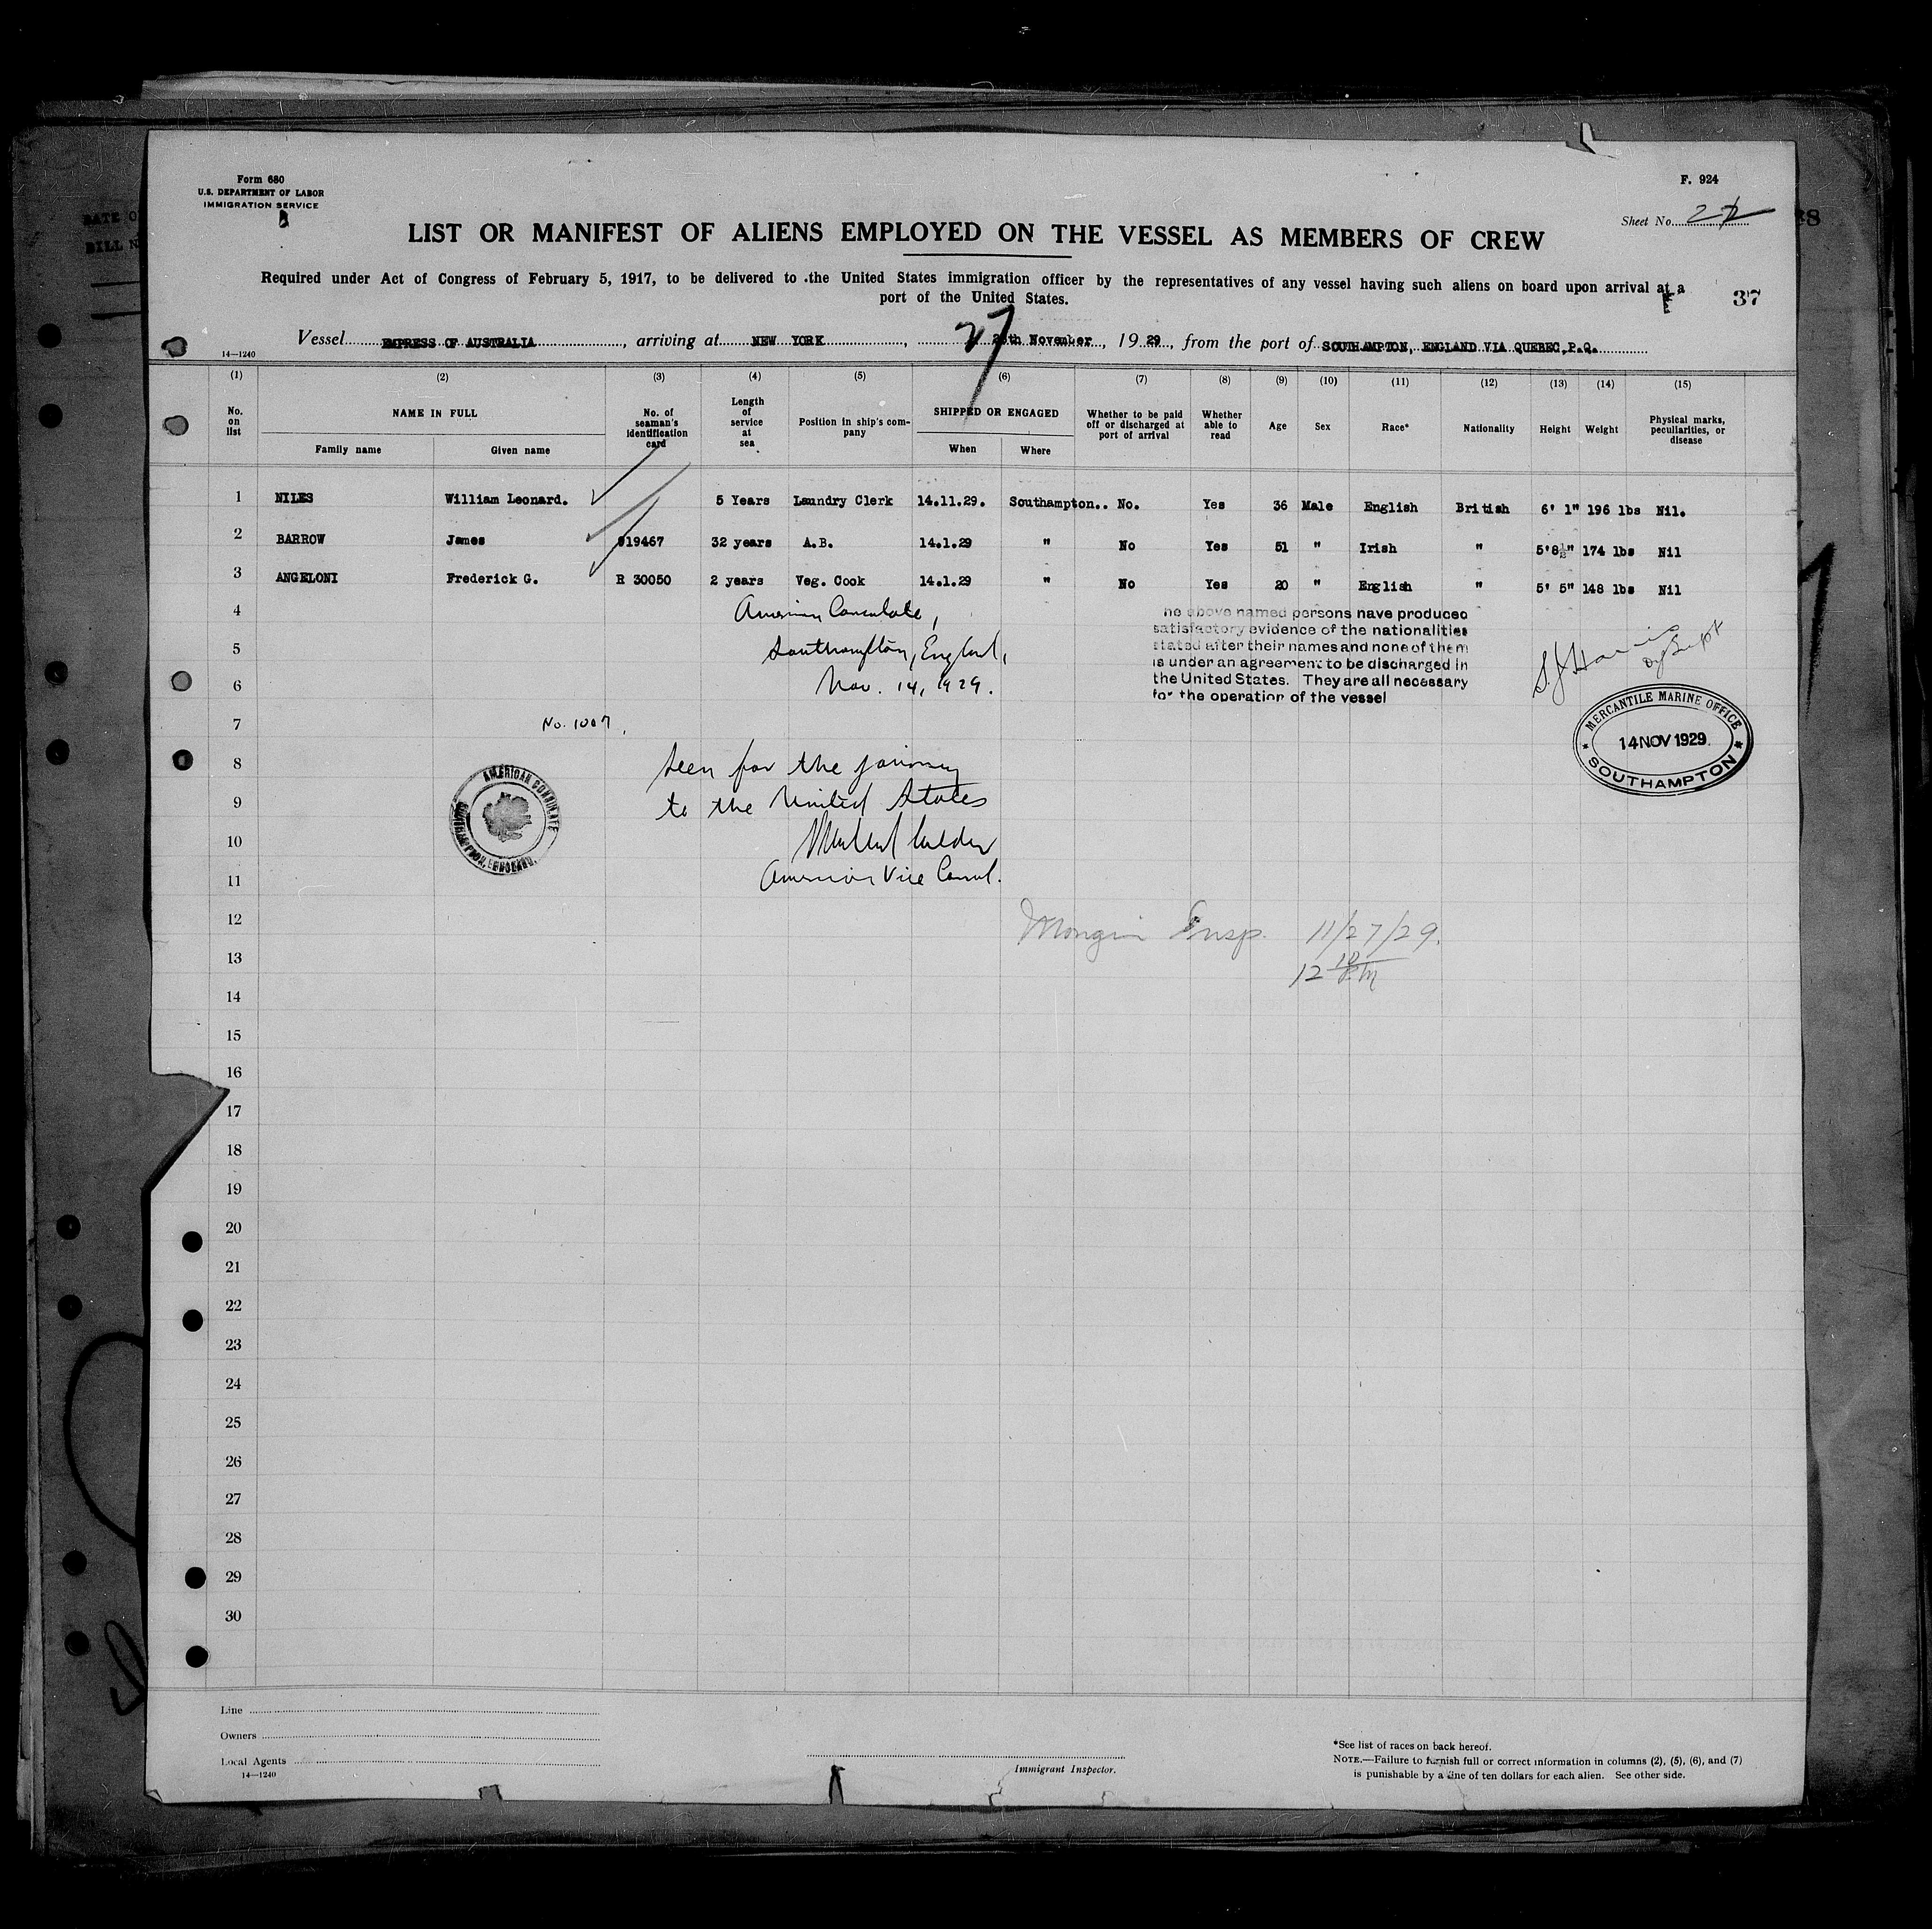 Form 680
U.S. DEPARTMENT OF LABOR
IMMIGRATION SERVICE
F. 924
Sheet No.
LIST OR MANIFEST OF ALIENS EMPLOYED ON THE VESSEL AS MEMBERS OF CREW
Required under Act of Congress of February 5, 1917, to be delivered to the United States immigration officer by the representatives of any vessel having such aliens on board upon arrival at a
port of the United States.
37
27
Vessel EMPRESS OF AUSTRALIA, arriving at NEW YORK, November, 1929, from the port of SOUTHAMPTON, ENGLAND VIA QUEBEC,P.Q.
14—1240
(1) (2) (3) (4) (5) (6) (7) (8) (9) (10) (11) (12) (13) (14) (15)
No. on list
NAME IN FULL
Family name Given name
No. of seaman's identification card
Length of service at sea
Position in ship's company
SHIPPED OR ENGAGED
When Where
Whether to be paid off or discharged at port of arrival
Whether able to read
Age
Sex
Race*
Nationality
Height
Weight
Physical marks, peculiarities, or disease
1 NILES William Leonard. 5 Years Laundry Clerk 14.11.29. Southampton.. No. Yes 36 Male English British 6' 1" 196 lbs Nil.
2 BARROW James 919467 32 years A.B. 14.1.29 " No Yes 51 " Irish " 5'8½" 174 lbs Nil
3 ANGELONI Frederick G. R 30050 2 years Veg. Cook 14.1.29 " No Yes 20 " English " 5' 5" 148 lbs Nil
4 American Consulate,
5 Southampton, England,
6 Nov. 14, 1929.
he above named persons have produced
satisfactory evidence of the nationalities
stated after their names and none of them
is under an agreement to be discharged in
the United States. They are all necessary
for the operation of the vessel
MERCANTILE MARINE OFFICE
14 NOV 1929
SOUTHAMPTON
7 No. 1007.
8 Seen for the journey
9 to the United States
10
11 American Vice Consul.
AMERICAN CONSULATE
SOUTHAMPTON, ENGLAND.
12 Insp. 11/27/29.
13 12 10
14
15
16
17
18
19
20
21
22
23
24
25
26
27
28
29
30
Line
Owners
Local Agents
14—1240
Immigrant Inspector.
*See list of races on back hereof.
NOTE.—Failure to furnish full or correct information in columns (2), (5), (6), and (7)
is punishable by a fine of ten dollars for each alien. See other side.